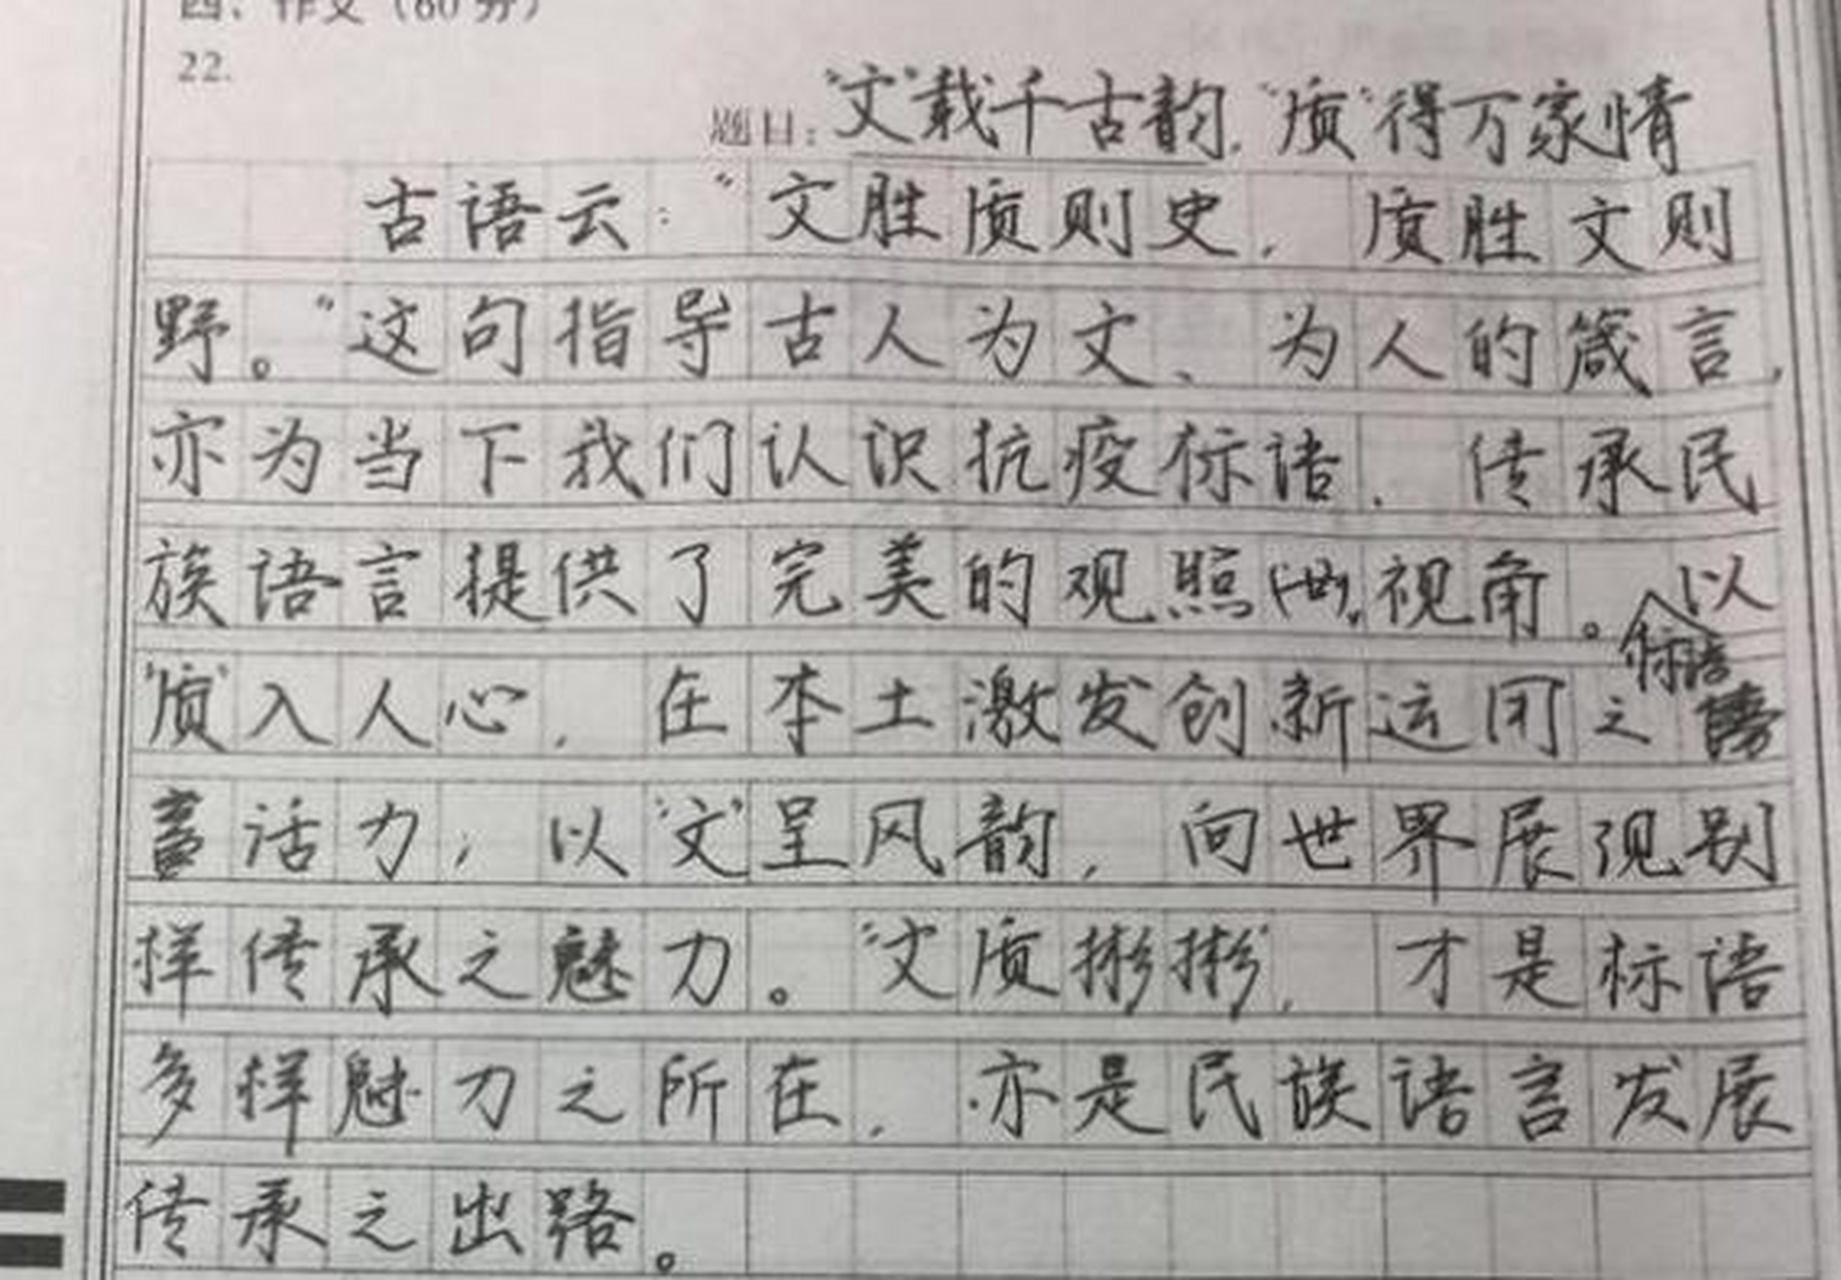 四、作文（60分）
22.
题目："文"载千古韵，"质"得万家情
古语云："文胜质则史，质胜文则
野。"这句指导古人为文、为人的箴言，
亦为当下我们认识抗疫标语，传承民
族语言提供了完美的观照视角。标语以
"质"入人心，在本土激发创新运闭之
活力，以"文"呈风韵，向世界展现别
样传承之魅力。"文质彬彬"，才是标语
多样魅力之所在，亦是民族语言发展
传承之出路。